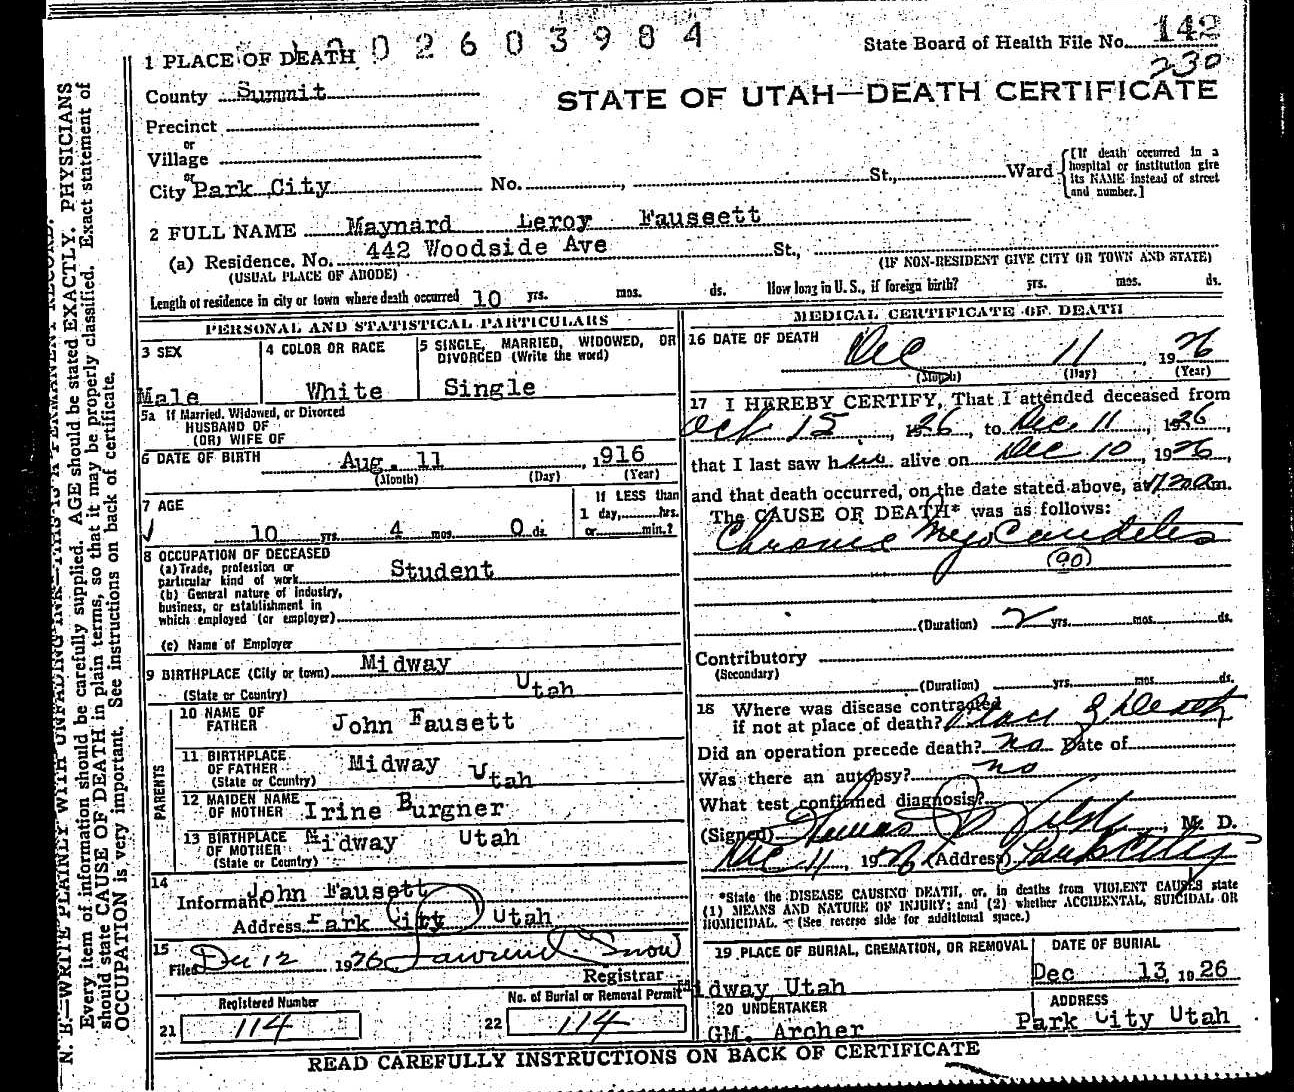 2603984
State Board of Health File No. 142
230
1 PLACE OF DEATH
County Summit
STATE OF UTAH—DEATH CERTIFICATE
Precinct
or
Village
or
City Park City No. , St., Ward
[If death occurred in a hospital or institution give its NAME instead of street and number.]
2 FULL NAME Maynard Leroy Faussett
(a) Residence, No. 442 Woodside Ave St.,
(USUAL PLACE OF ABODE) (IF NON-RESIDENT GIVE CITY OR TOWN AND STATE)
Length of residence in city or town where death occurred 10 yrs. mos. ds. How long in U.S., if foreign birth? yrs. mos. ds.
PERSONAL AND STATISTICAL PARTICULARS
3 SEX
Male
4 COLOR OR RACE
White
5 SINGLE, MARRIED, WIDOWED, OR DIVORCED (Write the word)
Single
5a If Married, Widowed, or Divorced
HUSBAND OF
(OR) WIFE OF
6 DATE OF BIRTH Aug. 11, 1916
(Month) (Day) (Year)
7 AGE
10 yrs. 4 mos. 0 ds.
If LESS than
1 day, hrs.
or min.?
8 OCCUPATION OF DECEASED
(a) Trade, profession or
particular kind of work Student
(b) General nature of industry,
business, or establishment in
which employed (or employer)
(c) Name of Employer
9 BIRTHPLACE (City or town) Midway
(State or Country) Utah
PARENTS
10 NAME OF
FATHER John Fausett
11 BIRTHPLACE
OF FATHER Midway Utah
(State or Country)
12 MAIDEN NAME
OF MOTHER Irine Burgner
13 BIRTHPLACE
OF MOTHER Midway Utah
(State or Country)
14
Informant John Fausett
Address Park City Utah
15
Filed Dec 12 1926 Lawrence Snow
Registrar
Registered Number
21 114
No. of Burial or Removal Permit
22 114
MEDICAL CERTIFICATE OF DEATH
16 DATE OF DEATH
Dec 11, 1926
(Month) (Day) (Year)
17 I HEREBY CERTIFY, That I attended deceased from
Oct 15, 1926, to Dec. 11, 1926,
that I last saw him alive on Dec 10, 1926,
and that death occurred, on the date stated above, at m.
The CAUSE OF DEATH* was as follows:
Chronic Myocarditis
(90)
(Duration) 2 yrs. mos. ds.
Contributory
(Secondary)
(Duration) yrs. mos. ds.
18 Where was disease contracted
if not at place of death? Place of Death
Did an operation precede death? no Date of
Was there an autopsy? no
What test confirmed diagnosis?
(Signed) Thomas M. D.
Dec 11, 1926 (Address) Park City
*State the DISEASE CAUSING DEATH, or, in deaths from VIOLENT CAUSES state
(1) MEANS AND NATURE OF INJURY; and (2) whether ACCIDENTAL, SUICIDAL OR
HOMICIDAL. (See reverse side for additional space.)
19 PLACE OF BURIAL, CREMATION, OR REMOVAL
Midway Utah
DATE OF BURIAL
Dec 13, 1926
20 UNDERTAKER
GM. Archer
ADDRESS
Park City Utah
READ CAREFULLY INSTRUCTIONS ON BACK OF CERTIFICATE
N. B.—WRITE PLAINLY WITH UNFADING INK—THIS IS A PERMANENT RECORD.
Every item of information should be carefully supplied. AGE should be stated EXACTLY. PHYSICIANS
should state CAUSE OF DEATH in plain terms, so that it may be properly classified. Exact statement of
OCCUPATION is very important. See instructions on back of certificate.